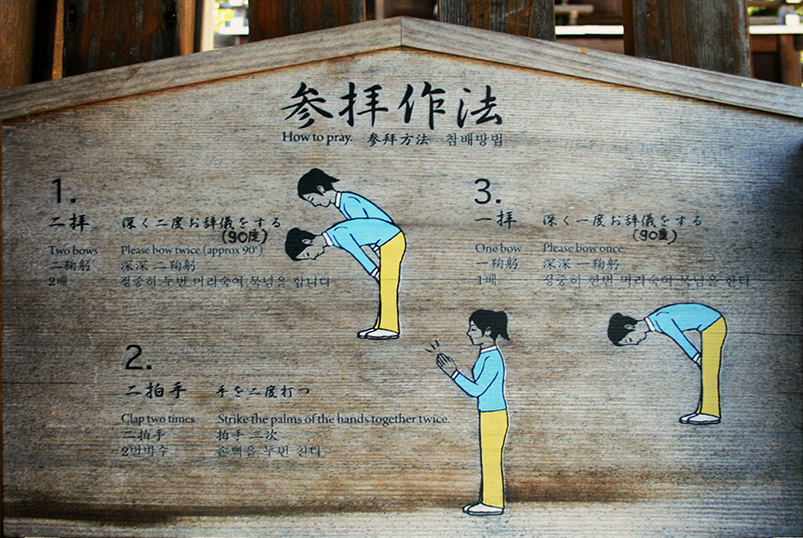 参拝作法
How to pray. 参拜方法 참배방법
1.
二拝 深く二度お辞儀をする
(90度)
Two bows Please bow twice.(approx 90°)
二鞠躬 深深 二鞠躬
2배 정중히 두번 머리숙여 묵념을 합니다
2.
二拍手 手を二度打つ
Clap two times Strike the palms of the hands together twice.
二拍手 拍手 二次
2번박수 손뼉을 두번 친다
3.
一拝 深く一度お辞儀をする
(90度)
One bow Please bow once.
一鞠躬 深深 一鞠躬
1배 정중히 한번 머리숙여 묵념을 한다